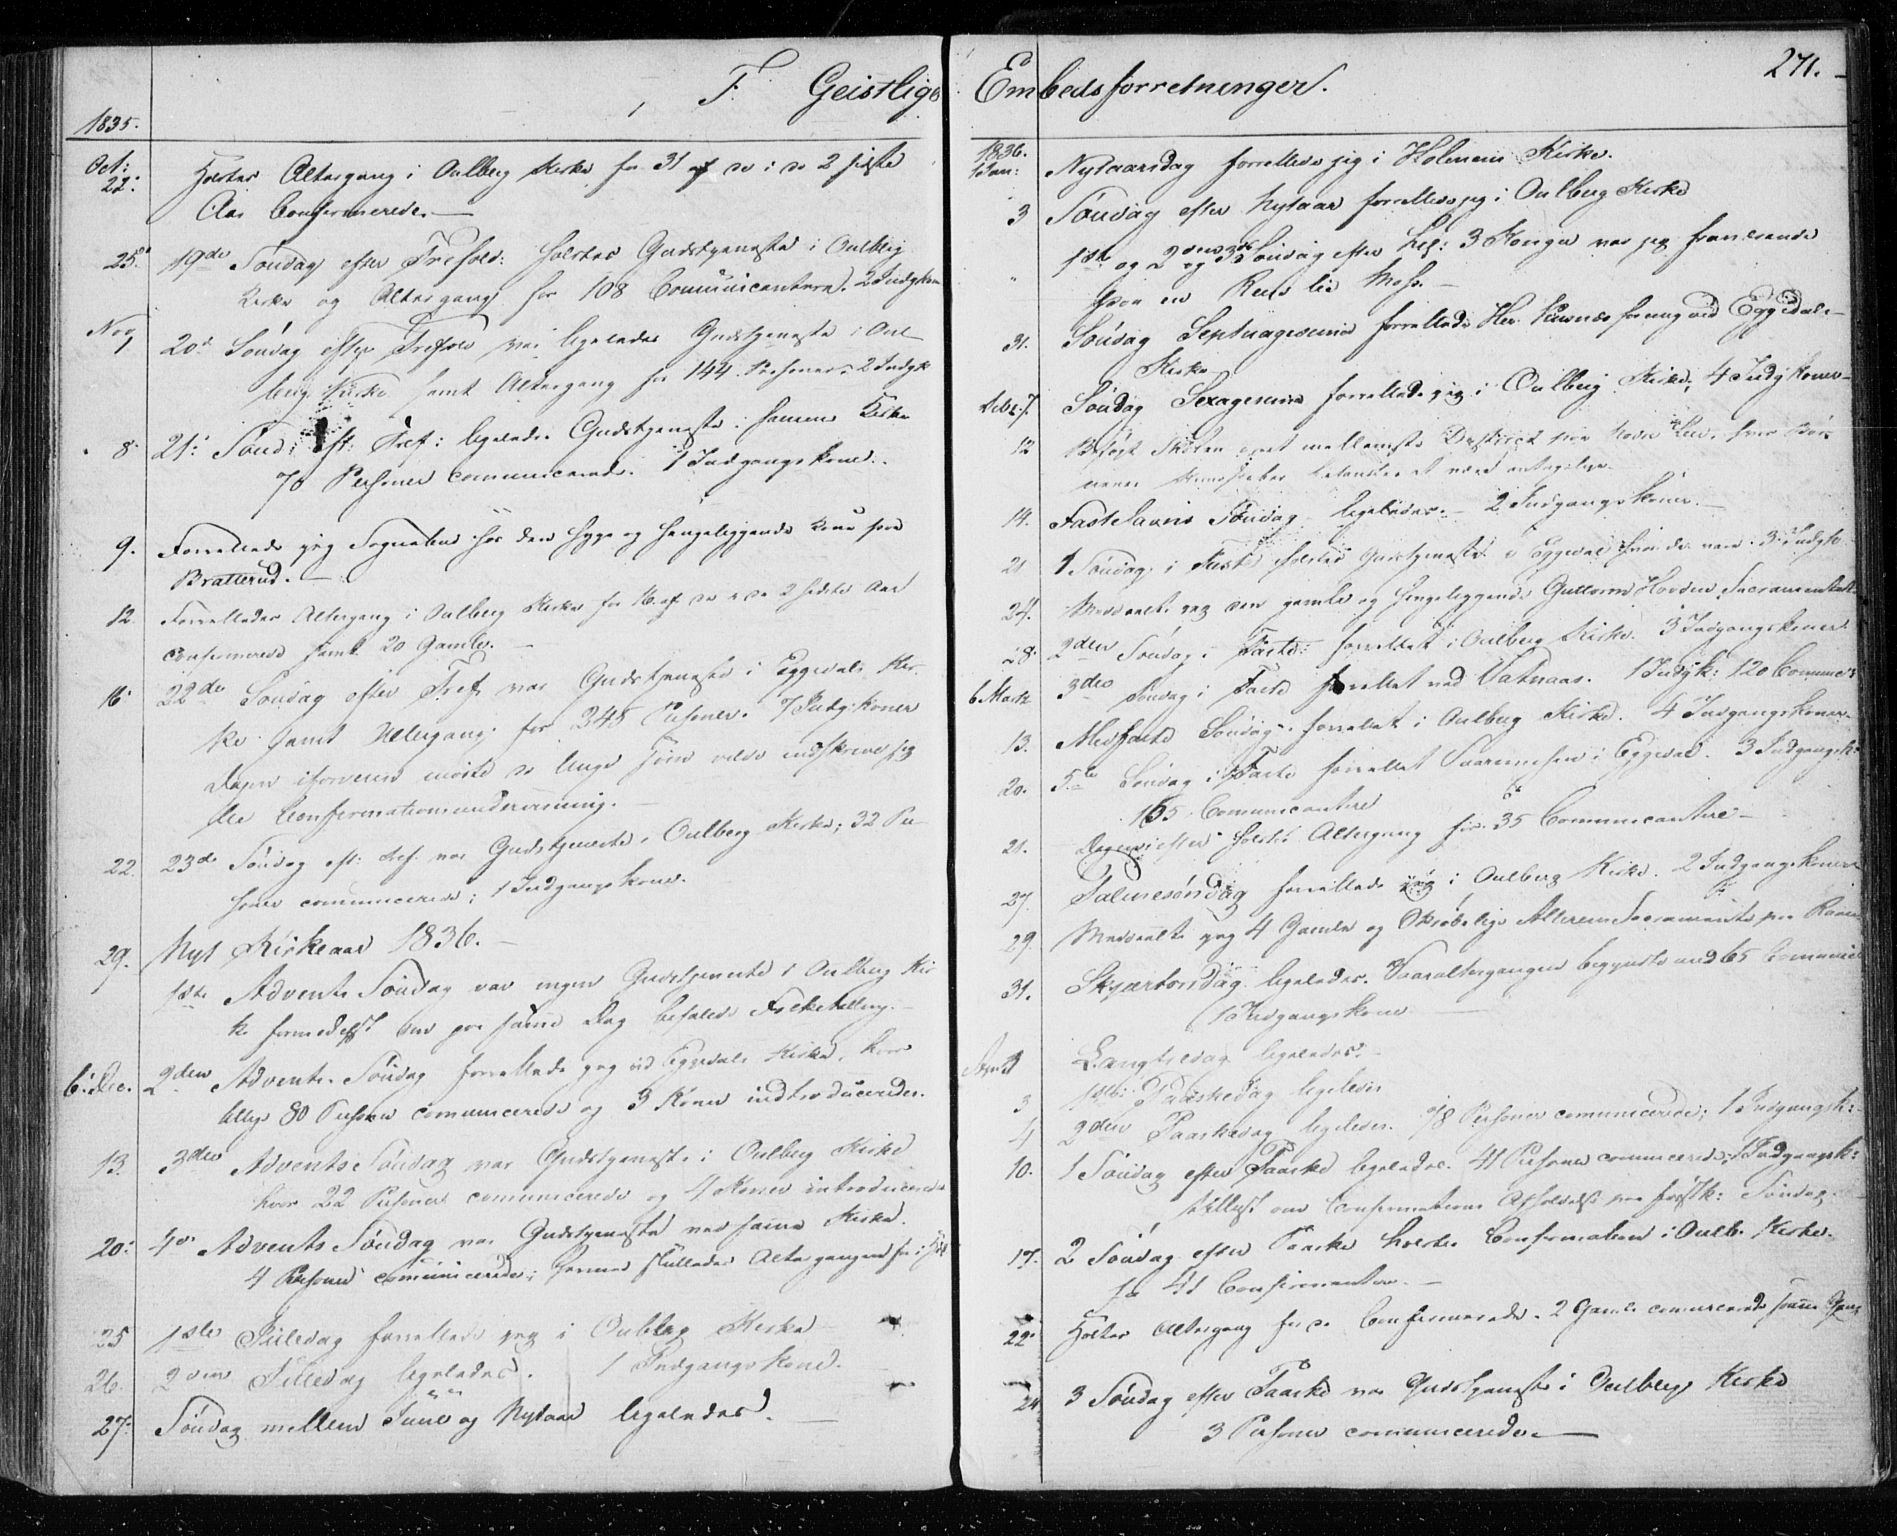 F. Geistlige Embedsforretninger.
271.
1835.
Oct: 22. Holdtes Altergang i Oulberg Kirke for 31 af de i de 2 sidste
Aar Confirmerede.
25. 19de Søndag efter Trefold: holdtes Gudstjeneste i Oulberg
Kirke og Altergang for 108 Communicantere. 2 Indgkon
Nov 1 20de Søndag efter Trefold var ligeledes Gudstjeneste i Oul
berg Kirke samt Altergang for 144 Personer. 2 Indgk
8. 21. Sønd: eft: Tref: ligeledes Gudstjeneste i samme Kirke
70 Personer communicerede. 1 Indgangskone.
9. Forrettede jeg Sognebud hos den syge og sengeliggende Kone paa
Bratterud.
12. Forrettedes Altergang i Oulberg Kirke for 16 af de i de 2 sidste Aar
Confirmerede samt 20 Gamle.
16. 22de Søndag efter Tref var Gudstjeneste i Eggedals Kir-
ke samt Altergang for 345 Personer. 7 Indg:koner
Dagen iforveien mødte de Unge som vilde indskrive sig
til Confirmationsunderviisning.
22. 23de Søndag eft: Tref. var Gudstjeneste i Oulberg Kirke; 32 Per
soner communicerede; 1 Indgangskone.
29. Nyt Kirkeaar 1836.
1ste Advents Søndag var ingen Gudstjeneste i Oulberg Kir
ke formedelst den paa samme Dag befalede Folketelling.
6. Dec. 2den Advents Søndag forrettede jeg ved Eggedals Kirke, hvor
80 Personer communicerede og 3 Koner indtroducerede.
13. 3die Advents Søndag var Gudstjeneste i Oulberg Kirke
hvor 22 Personer communicerede og 4 Koner introducerede
20. 4de Advents Søndag var Gudstjeneste ved samme Kirke.
4 Personer communicerede; hermed sluttedes Altergangen for i
25 1ste Juledag forrettede jeg i Oulberg Kirke
26. 2den Juledag ligeledes. 1 Indgangskone.
27. Søndag mellem Juul og Nytaar ligeledes.
1836.
1 Jan: Nytaarsdag forrettede jeg i Holmens Kirke.
3 Søndag efter Nytaar forrettede jeg i Oulberg Kirke
" 1ste og 2den og 3die Søndag efter Hel: 3 Konger var jeg fraværende
paa en Reis til Moss.
31. Søndag Septuagesima forrettede Her for mig ved Eggedals
Kirke
Febr 7. Søndag Sexagesima forrettede jeg i Oulberg Kirke, 4 Indgkoner
12 Besøgt Skolen i det mellemste District paa Lie, hvor Bør-
nenes Kundskaber befandtes at være antagelige.
14. Fastelavns Søndag ligeledes. 2 Indgangskoner.
21 1 Søndag i Faste holdtes Gudstjeneste i Eggedal hvor der vare 3 Indgk
24. Meddeelte jeg den gamle og sengeliggende Guttorm Hovden Sacramentet
28. 2den Søndag i Faste: forrettet i Oulberg Kirke. 3 Indgangskoner
6 Marts 3die Søndag i Faste forrettet ved Vatnaas. 1 Indgk: 120 Commu:
13. Midfaste Søndag forrettet i Oulberg Kirke. 4 Indgangskoner
20. 5te Søndag i Faste forrettet Vaarmessen i Eggedal. 3 Indgangsk:
165 Communicantere
21. Dagen efter holdtes Altergang for 35 Communicantere
27 Palmesøndag forrettede jeg i Oulberg Kirke. 2 Indgangskoner
29. Meddeelte jeg 4 Gamle og Skrøbelige Alterens Sacramente paa
31. Skjærtorsdag ligeledes. Vaaraltergangen begyndte med 65 Communic
1 Indgangskone
April 1 Langfredag ligeledes.
3 1ste Paaskedag ligeledes
4 2den Paaskedag ligeledes. 78 Personer communicerede; 1 Indgangsk:
10. 1 Søndag efter Paaske ligeledes. 41 Personer communicerede; 1 Indgangsk:
tillyst om Confirmations Afholdelse paa førstk: Søndag.
17. 2 Søndag efter Paaske holdtes Confirmation i Oulb. Kirke.
for 41 Confirmanter.
22. Holdtes Altergang for de Confirmerede. 2 Gamle communicerede samme Gang
24 3 Søndag efter Paaske var Gudstjeneste i Oulbergs Kirke
3 Personer communicerede.